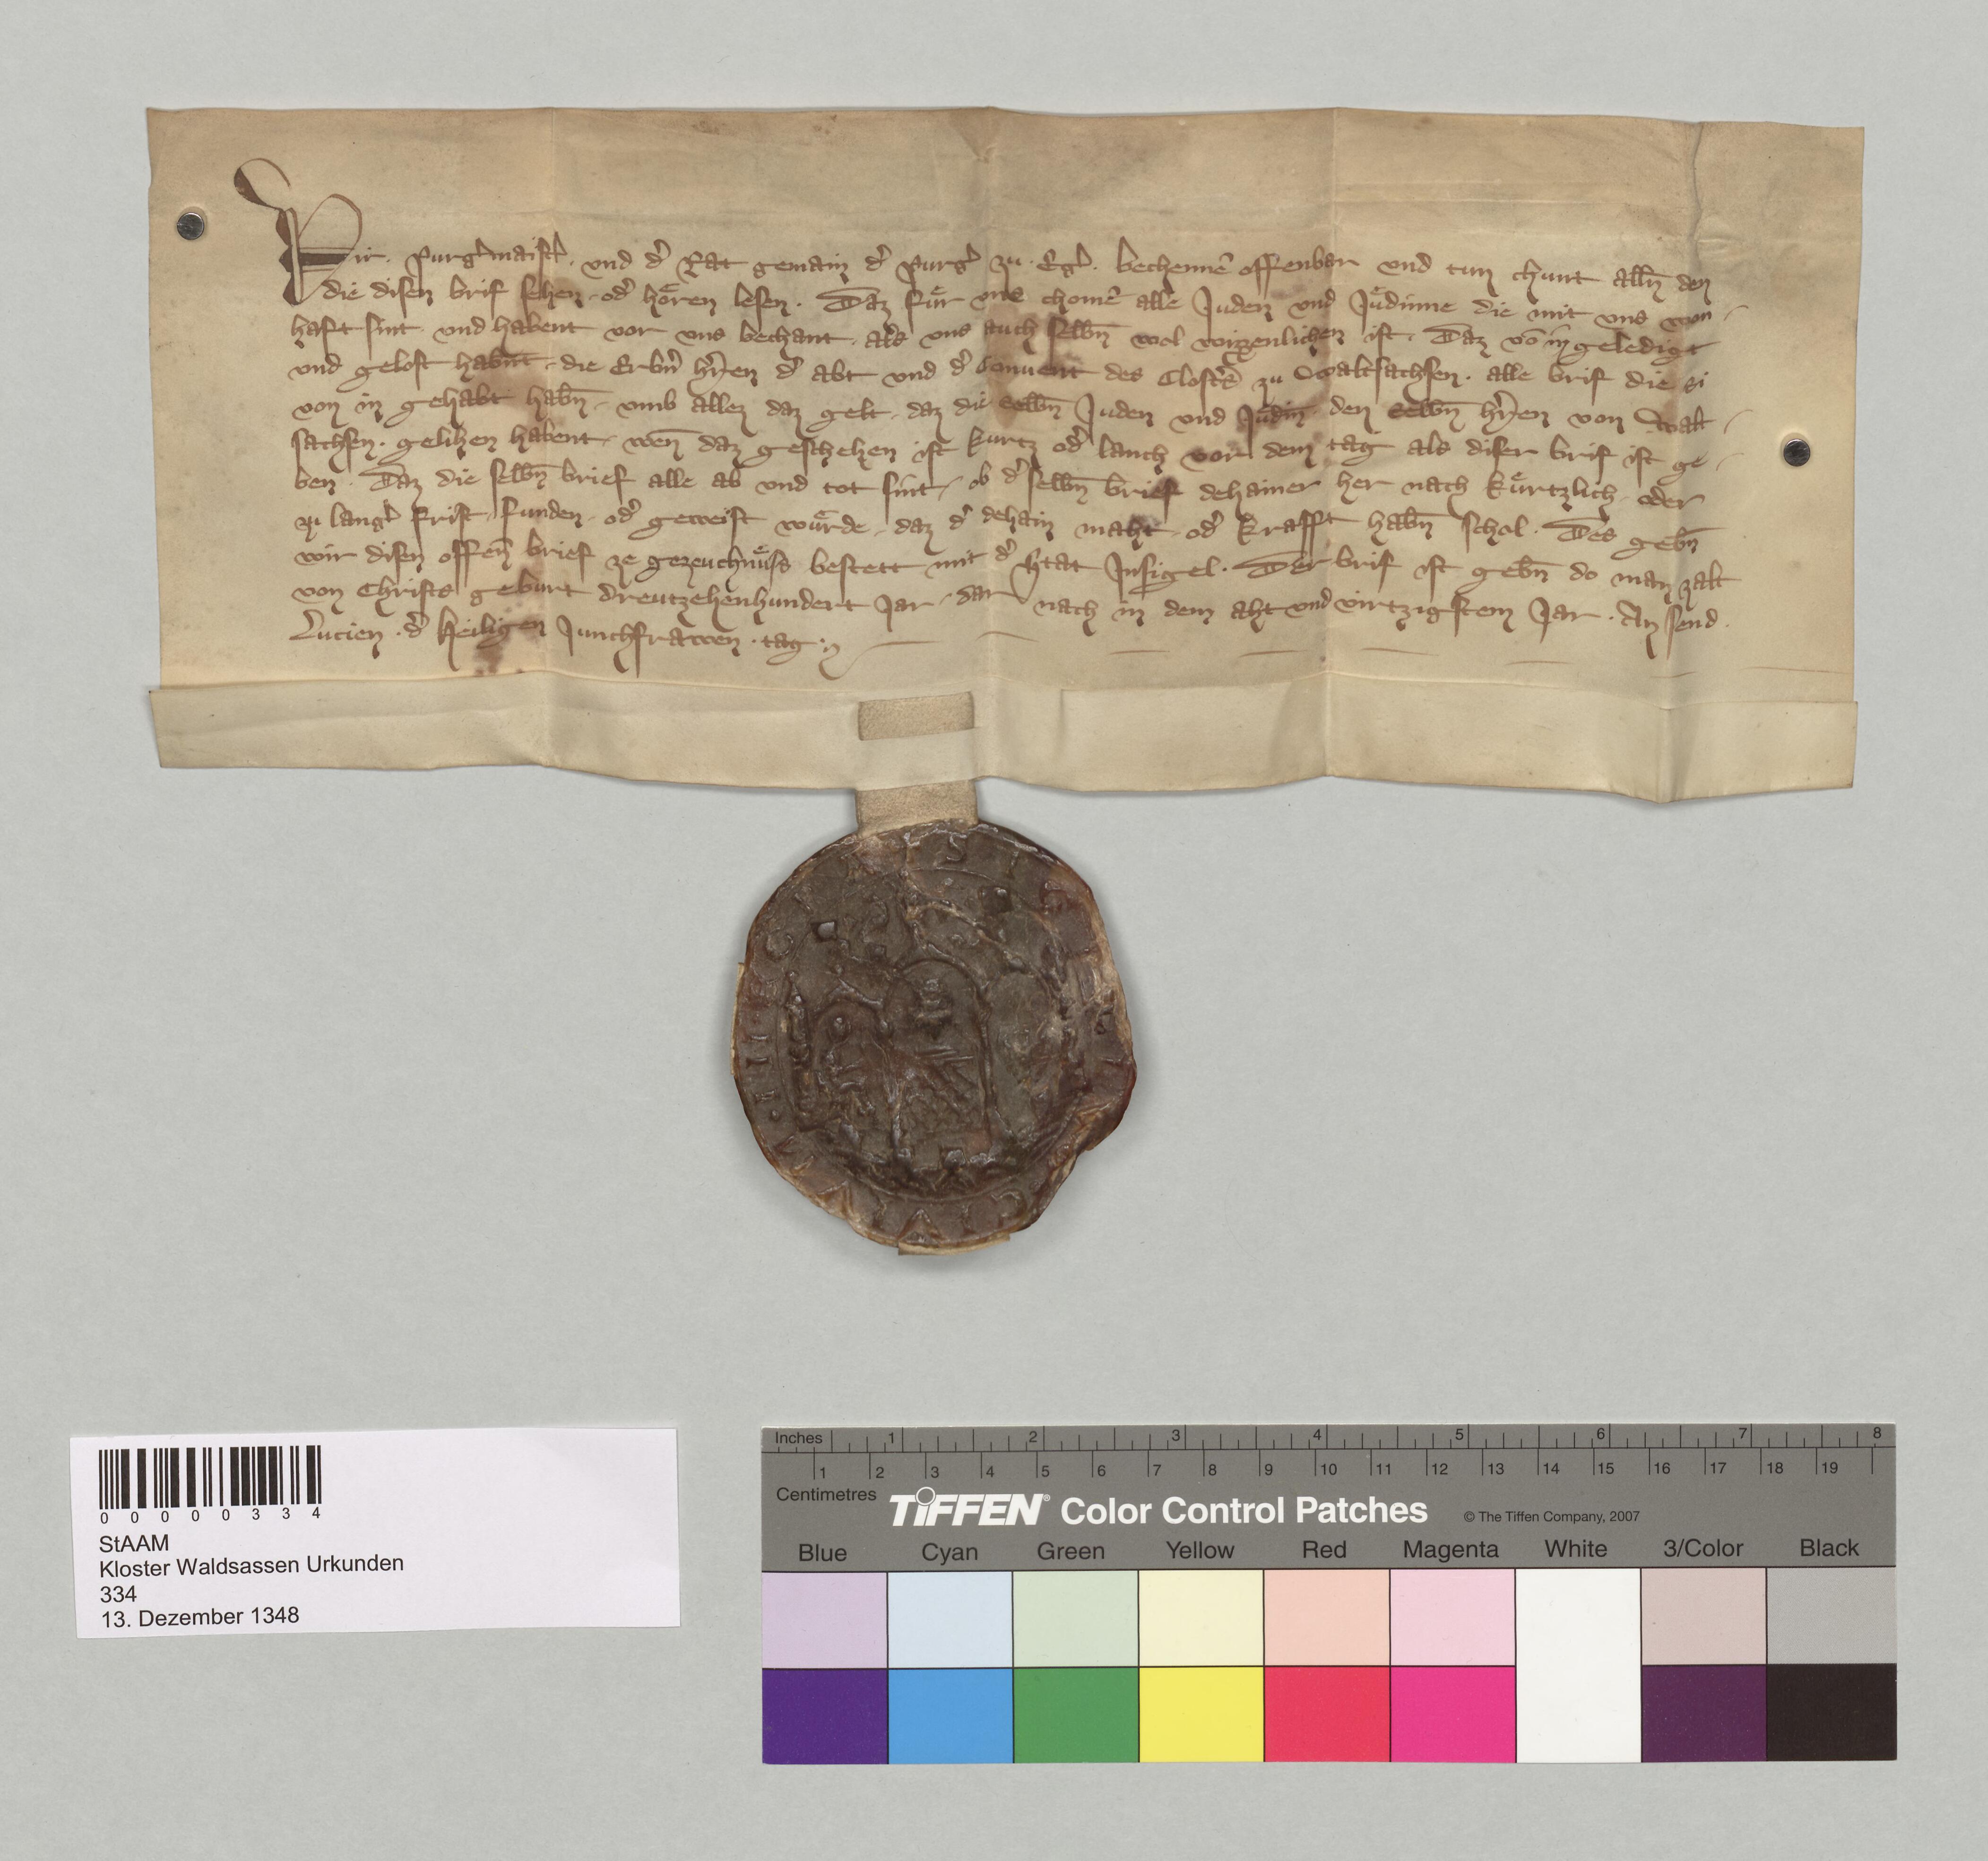 Wir. Purg᷑maist᷑. und d᷑ Rat gemain d᷑ Purg᷑ zu. Eg᷑. bechennē offenbar und tun chunt alln̄ den
die disen brif sehen. od᷑ hoͤren lesen. Daz fuͤr uns chomē alle Juden und Juͤdinne die mit uns won-
haft sint. und habent vor uns bechant. als uns auch selbn̄ wol wizzenlichen ist. Daz vō in geledigt
und gelost habn̄t. die Erbn̄ h᷑ren d᷑ abt und d᷑ Convent des Clost᷑s zu Waltsachsen. alle brif die si
von in gehabt habn̄. umb allez daz gelt. daz die selbn̄ Juden und Juͤdin̄. den selbn̄ h᷑ren von Walt-
sachsen. gelihen habent. wen̄ daz geschehen ist kurtz od᷑ lanch vor dem tag als diser brif ist ge-
ben. Daz die selbn̄ brief alle ab und tot sint. ob d᷑ selbn̄ brief dehainer her nach kuͤrtzlich. oder
zu lang᷑ frist. funden. od᷑ geweist wuͤrde. daz d᷑ dehain maht. od᷑ krafft habn̄ schol. Des gebn̄
wir disen offen̄ brief ze gezeuchnuͤss bestett mit d᷑ Stat Insigel. Der brif ist gebn̄ do man zalt
von Christs geburt dreutzehenhundert Jar. dar nach in dem aht und virtzigstem Jar. An send.
Lucien. d᷑ heiligen Junchfrawen. tag.
0 0 0 0 0 3 3 4
StAAM
Kloster Waldsassen Urkunden
334
13. Dezember 1348
Inches 1 2 3 4 5 6 7 8
1 2 3 4 5 6 7 8 9 10 11 12 13 14 15 16 17 18 19
Centimetres
TIFFEN® Color Control Patches © The Tiffen Company, 2007
Blue Cyan Green Yellow Red Magenta White 3/Color Black